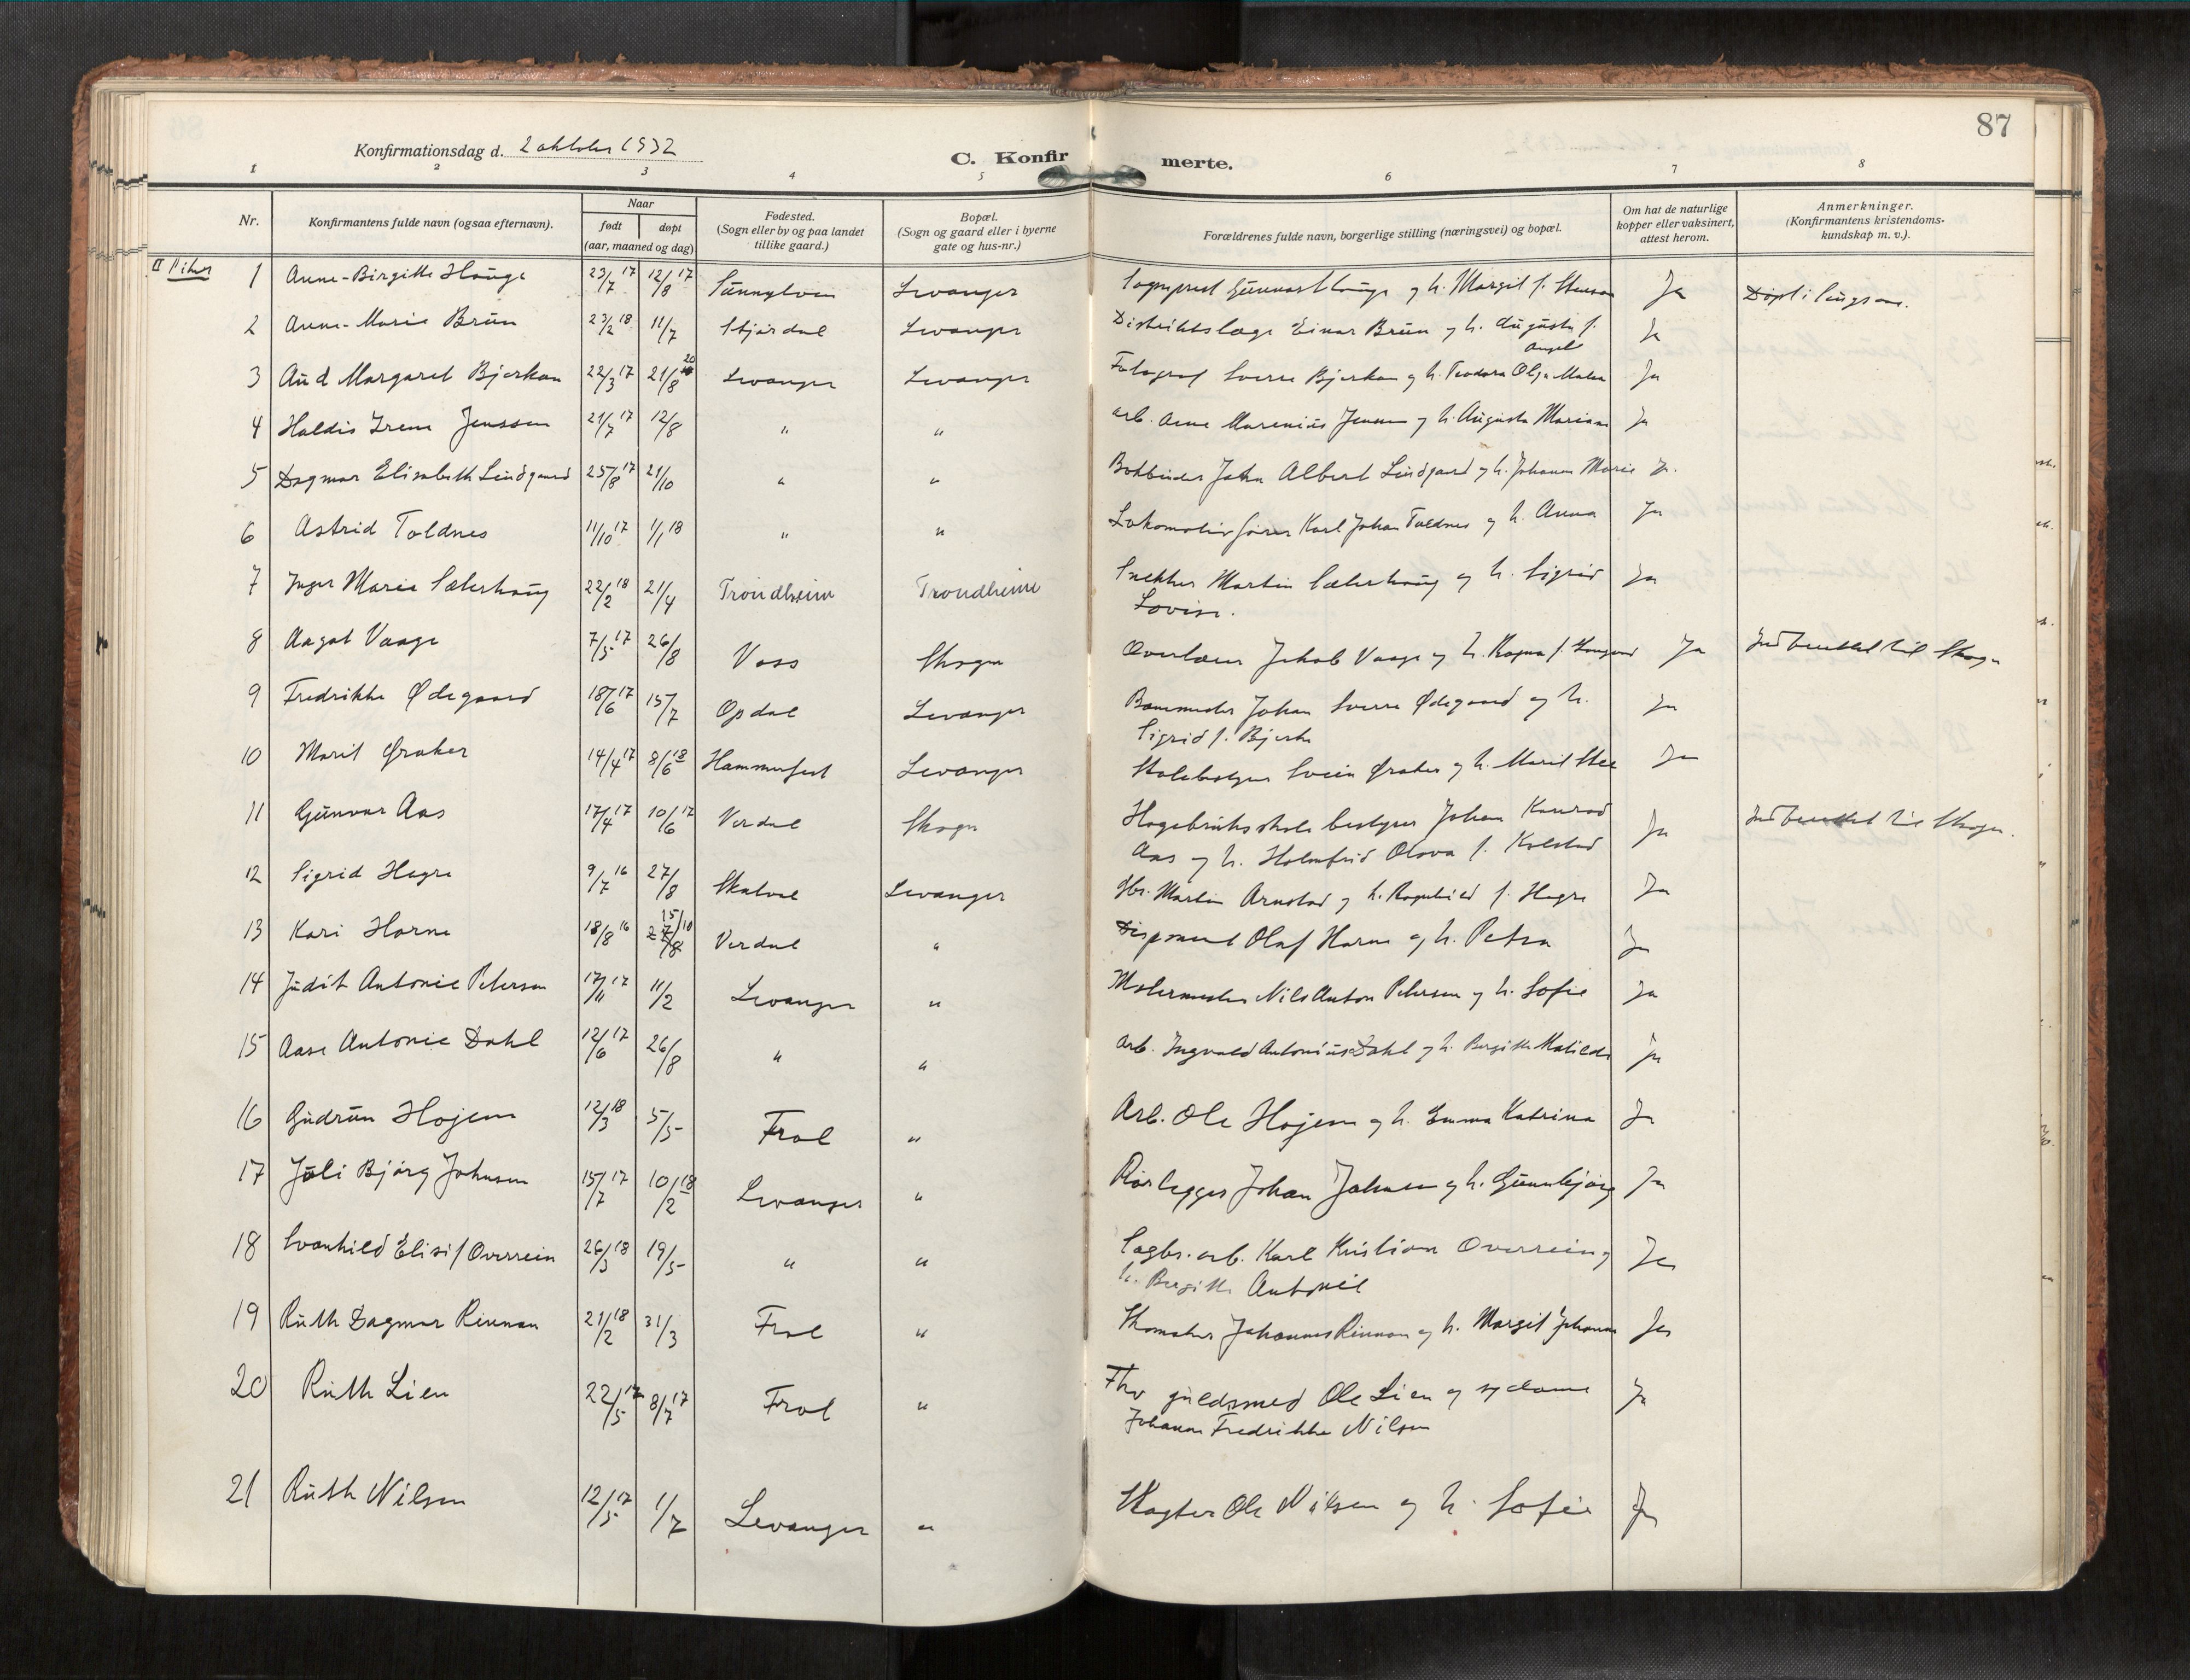 87
Konfirmationsdag d. 2 oktober 1932
C. Konfirmerte.
1 2 3 4 5 6 7 8
Nr.
Konfirmantens fulde navn (ogsaa efternavn).
Naar
født døpt
(aar, maaned og dag)
Fødested.
(Sogn eller by og paa landet
tillike gaard.)
Bopæl.
(Sogn og gaard eller i byerne
gate og hus-nr.)
Forældrenes fulde navn, borgerlige stilling (næringsvei) og bopæl.
Om hat de naturlige
kopper eller vaksinert,
attest herom.
Anmerkninger.
(Konfirmantens kristendoms-
kundskap m. v.).
II Piker
1 Anne-Birgitte Hauge 23/7 17 12/8 17 Sunnylven Levanger Sogneprest Gunnar Hauge og h. Margit f. Ja Døpt i
2 Anne-Marie Brun 23/2 18 11/7 Stjørdal Levanger Distriktslæge Einar Brun og h. Augusta f. Angel Ja
3 Aud Margaret Bjerkan 22/3 17 21/8 20 Levanger Levanger Fotograf Sverre Bjerkan og h. Teodora Olga Ja
4 Haldis Irene Jenssen 21/7 17 12/8 " " arb. Arne Marenius Jenssen og h. Augusta Mariane Ja
5 Dagmar Elisabeth Lindgaard 25/8 17 21/10 " " Bokbinder John Albert Lindgaard og h. Johanna Marie Ja
6 Astrid Toldnes 11/10 17 1/1 18 " " Lokomotivfører Karl Johan Toldnes og h. Anna Ja
7 Inger Marie Sæterhaug 22/2 18 21/4 Trondheim Trondheim Snekker Martin Sæterhaug og h. Sigrid Ja
Lovise.
8 Aagot Vaage 7/5 17 26/8 Voss Skogn Overlærer Jakob Vaage og h. Ragna f. Ja Innberettet til Skogn
9 Fredrikke Ødegaard 18/6 17 15/7 Opdal Levanger Banemester Johan Sverre Ødegaard og h. Ja
Sigrid f. Bjerke
10 Marit Øraker 14/4 17 8/6 18 Hammerfest Levanger Skolebestyrer Svein Øraker og h. Marit Ja
11 Gunvor Aas 17/4 17 10/6 17 Verdal Skogn Hagebruksskolebestyrer Johan Konrad Ja Innberettet til Skogn.
Aas og h. Holmfrid Olava f. Kolstad
12 Sigrid Hegre 9/7 16 27/8 Skatval Levanger gbr. Martin Arnstad og h. Ragnhild f. Hegre Ja
13 Kari Horne 18/8 16 15/10 Verdal " Disponent Olaf Horne og h. Petra Ja
14 Judit Antonie Petersen 17/11 17 11/2 Levanger " Malermester Nils Anton Petersen og h. Sofie Ja
15 Aase Antonie Dahl 12/6 17 26/8 " " arb. Ingvald Antonius Dahl og h. Bergitte Matilde Ja
16 Gudrun Hojem 12/3 18 5/5 Frol " Arb. Ole Hojem og h. Emma Katrina Ja
17 Juli Bjørg Johnsen 15/7 17 10/2 18 Levanger " Rørlegger Johan Johnsen og h. Gunnbjørg Ja
18 Svanhild Elisif Overrein 26/3 18 19/5 " " Sagbr. arb. Karl Kristian Overrein og Ja
h. Bergitte Antonie
19 Ruth Dagmar Rinnan 21/2 18 31/3 Frol " Skomaker Johannes Rinnan og h. Margit Johanna Ja
20 Ruth Lien 22/5 17 8/7 17 Frol " Fhv guldsmed Ole Lien og sydame Ja
Johanna Fredrikke Nilsen
21 Ruth Nilsen 12/5 17 1/7 Levanger " Slagter Ole Nilsen og h. Sofie Ja